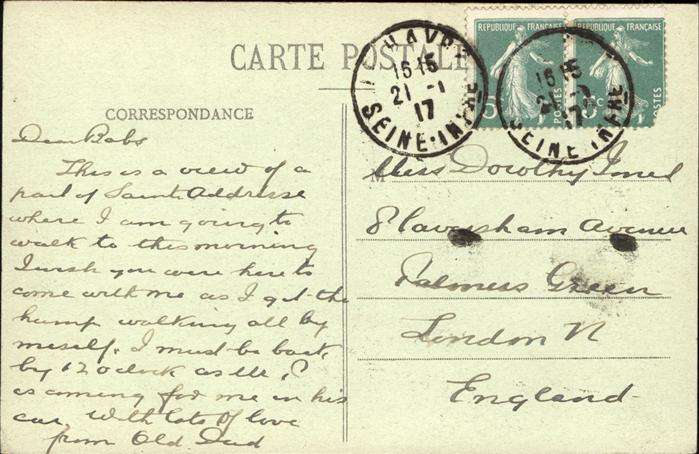 CARTE POSTALE
REPUBLIQUE FRANÇAISE
REPUBLIQUE FRANÇAISE
POSTES
POSTES
HAVRE
16 15
21 -1
17
SEINE-INFRE
16 15
21 -1
17
SEINE-INFRE
CORRESPONDANCE
Dear Babs
This is a view of a
part of Saint Addresse
where I am going to
walk to this morning
I wish you were here to
come with me as I get the
hump walking all by
meself. I must be back
by 12 oclock as
is coming for me in his
car. With lots of love
from Old Dad
M
Miss Dorothy
8 Caversham Avenue
Palmers Green
London N
England